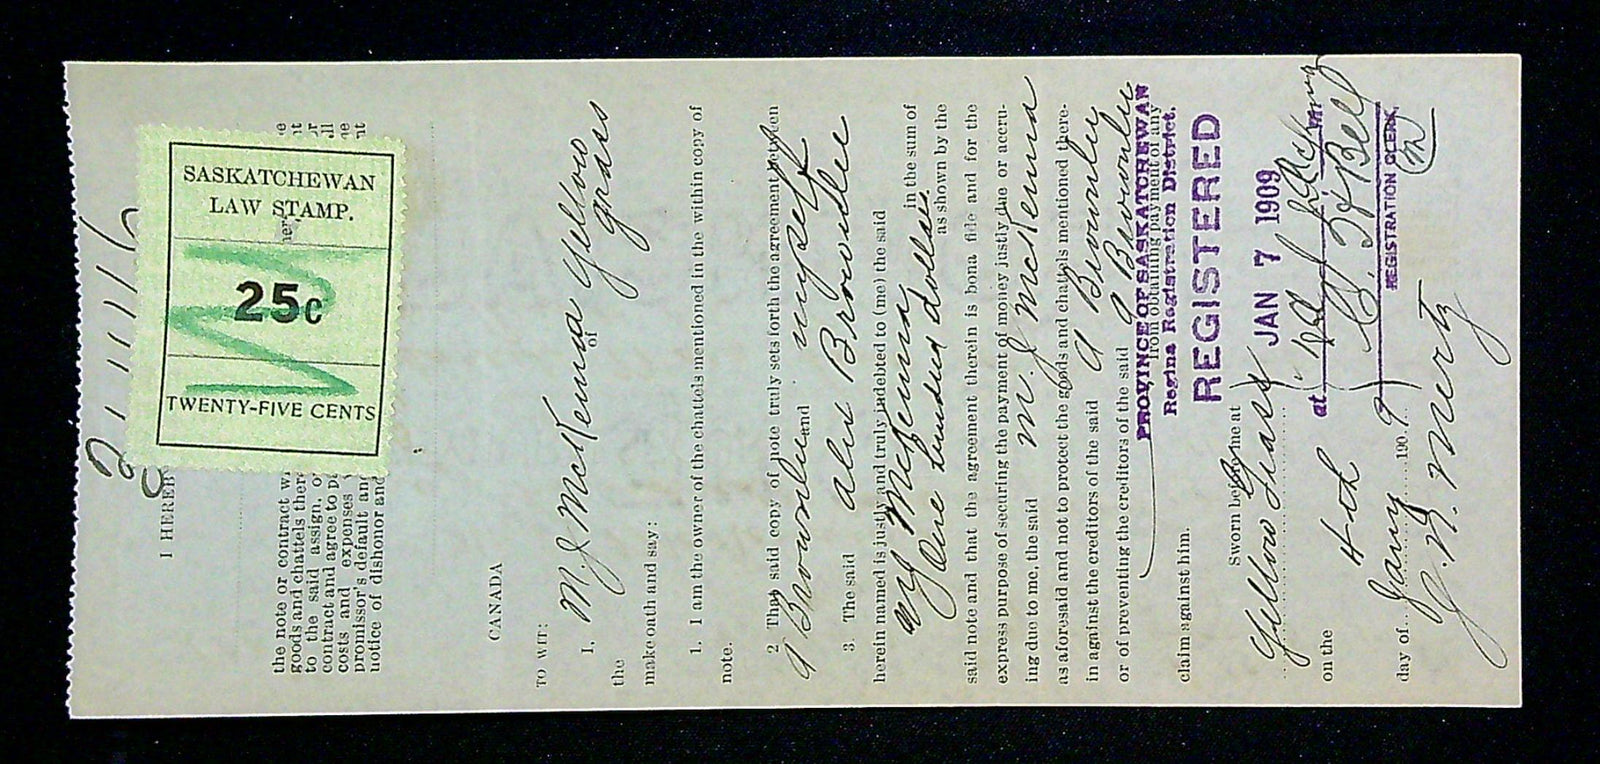 21116
SASKATCHEWAN
LAW STAMP.
25c
TWENTY-FIVE CENTS
I HEREB
the note or contract w
goods and chattels ther
to the said assign, o
contract and agree to p
costs and expenses
promissor's default and
notice of dishonor and
CANADA
TO WIT:
I, M. J McKenna of Yellow
the grass
make oath and say:
1. I am the owner of the chattels mentioned in the within copy of
note.
2 That said copy of note truly sets forth the agreement between
A Brownlee and myself
3. The said alix Brownlee
herein named is justly and truly indebted to (me) the said
M J McKenna in the sum of
five hundred dollars. as shown by the
said note and that the agreement therein is bona fide and for the
express purpose of securing the payment of money justly due or accru-
ing due to me, the said M. J McKenna
as aforesaid and not to protect the goods and chattels mentioned there-
in against the creditors of the said A Brownlee
or of preventing the creditors of the said A Brownlee
from obtaining payment of any
claim against him.
PROVINCE OF SASKATCHEWAN
Regina Registration District.
REGISTERED
JAN 7 1909
at
REGISTRATION CLERK.
Sworn before me at
Yellow Grass
on the 4th
day of Jany 1909